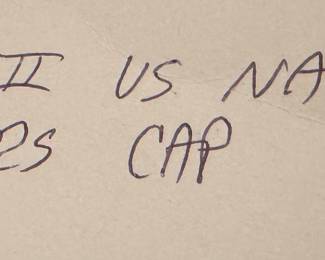 II US NA
RS CAP